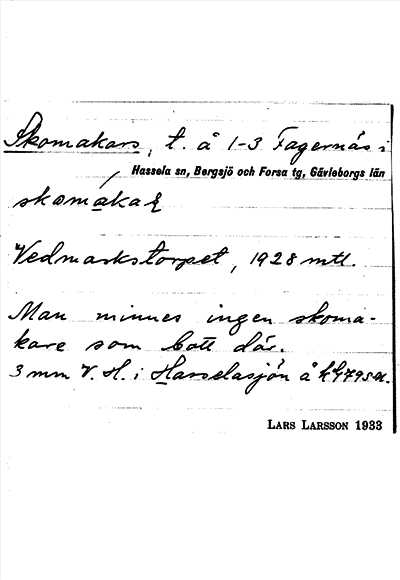 Skomakars, t. å 1-3 Fagernäs i
Hassela sn, Bergsjö och Forsa tg, Gävleborgs län
skomaka
Vedmarkstorpet, 1928 mtl.
Man minnes ingen skoma-
kare som bott där.
3 mm V. H. i Hasselasjön å
LARS LARSSON 1933